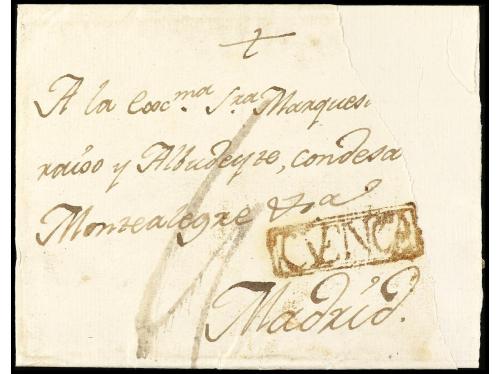 +
A la Excma. Sra Marques
raiso y Albudeyte, condesa
Montealegre &ra
CVENCA
Madrid.